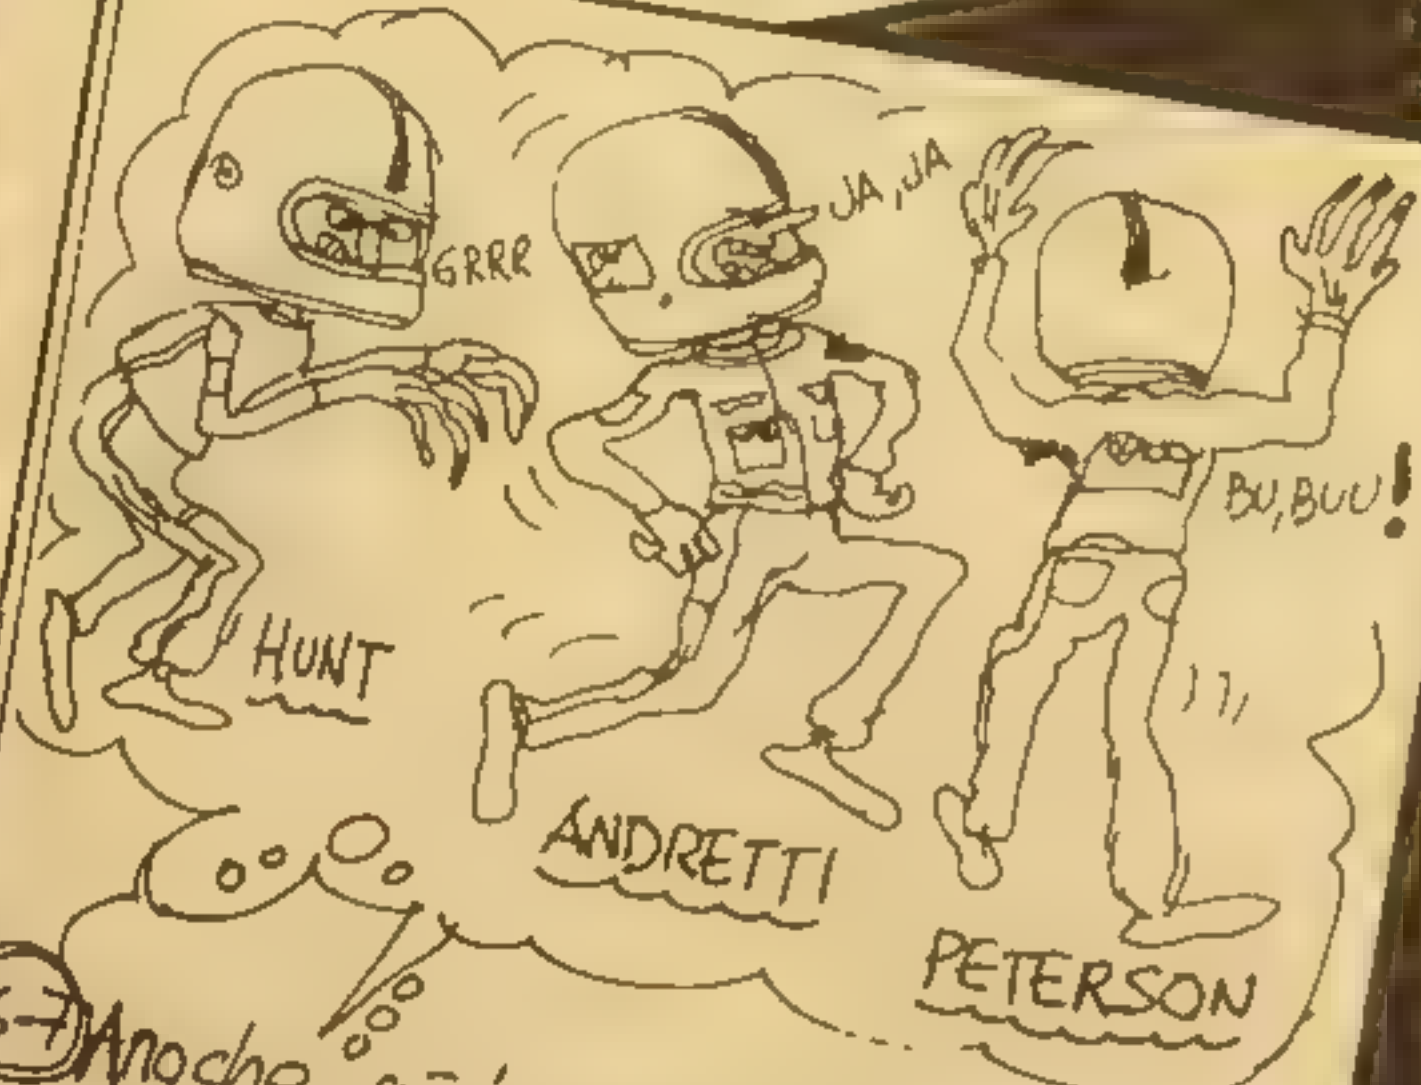 GRRR
JA, JA
BU, BUU!
HUNT
ANDRETTI
PETERSON
Anoche